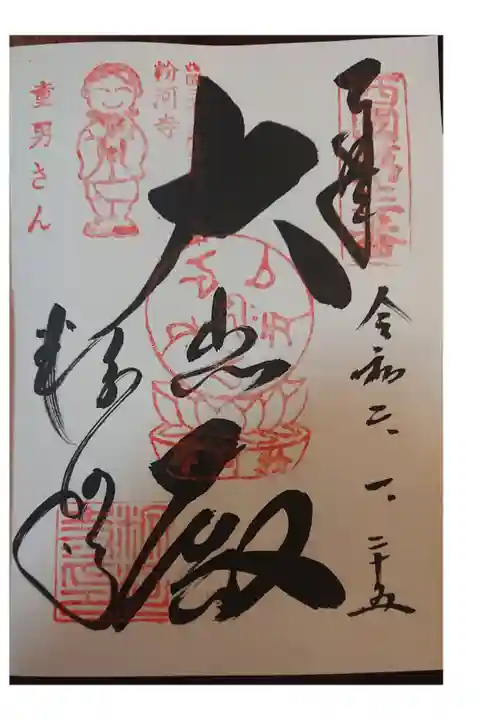 奉拝
西国第三番
令和二、一、二十五
大悲殿
粉河寺
童男さん
粉河寺